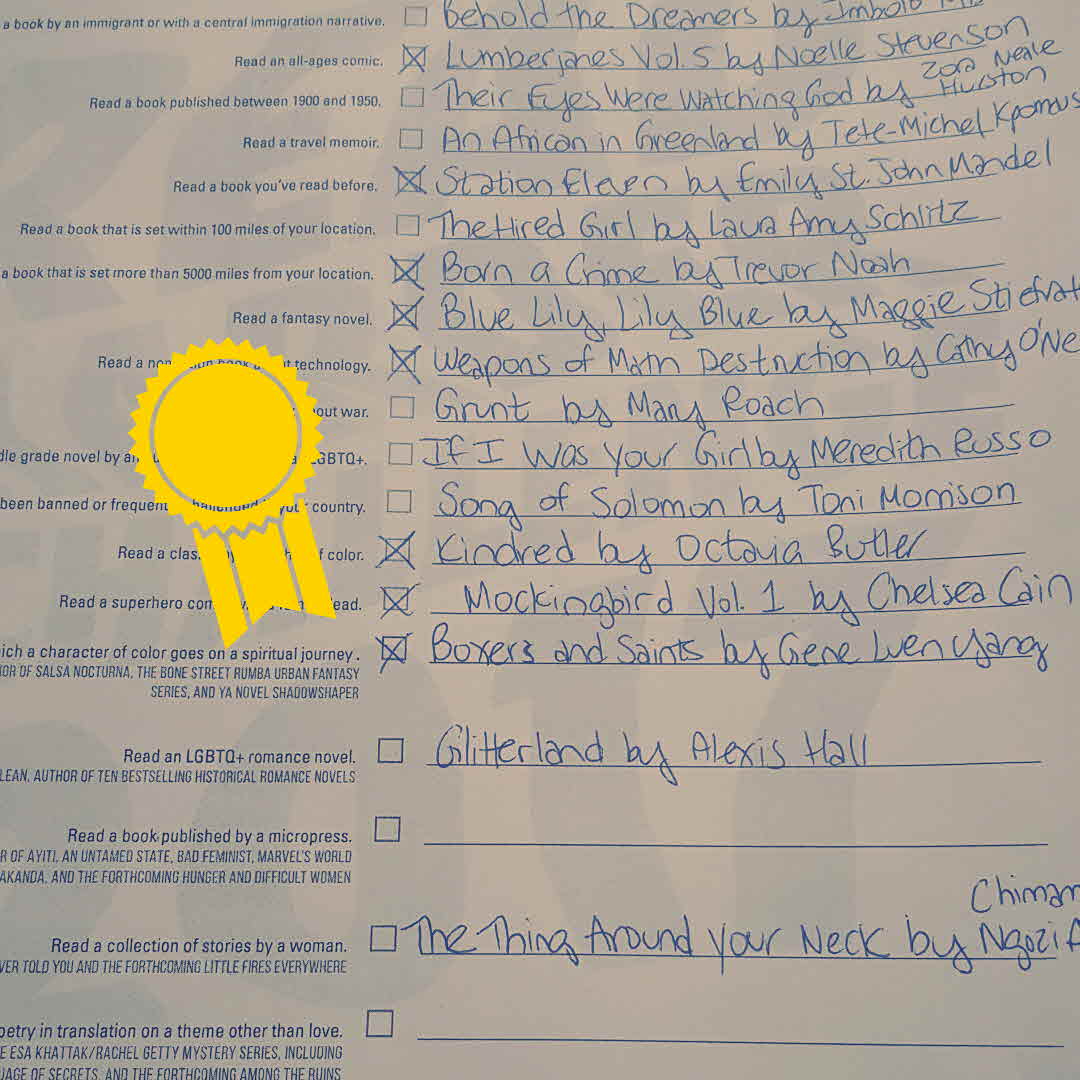 a book by an immigrant or with a central immigration narrative. Behold the Dreamers by Imbolo
Read an all-ages comic. Lumberjanes Vol. 5 by Noelle Stevenson
Zora Neale
Read a book published between 1900 and 1950. Their Eyes Were Watching God by Hurston
Read a travel memoir. An African in Greenland by Tete-Michel Kpomas
Read a book you've read before. Station Eleven by Emily St. John Mandel
Read a book that is set within 100 miles of your location. The Hired Girl by Laura Amy Schlitz
a book that is set more than 5000 miles from your location. Born a Crime by Trevor Noah
Read a fantasy novel. Blue Lily, Lily Blue by Maggie Stiefvat
Read a technology. Weapons of Math Destruction by Cathy O'Ne
out war. Grunt by Mary Roach
dle grade novel by an LGBTQ+. If I Was Your Girl by Meredith Russo
been banned or frequent your country. Song of Solomon by Toni Morrison
Read a clas f color. Kindred by Octavia Butler
Read a superhero com lead. Mockingbird Vol. 1 by Chelsea Cain
ich a character of color goes on a spiritual journey. Boxers and Saints by Gene Luen Yang
OR OF SALSA NOCTURNA, THE BONE STREET RUMBA URBAN FANTASY
SERIES, AND YA NOVEL SHADOWSHAPER
Read an LGBTQ+ romance novel. Glitterland by Alexis Hall
LEAN, AUTHOR OF TEN BESTSELLING HISTORICAL ROMANCE NOVELS
Read a book published by a micropress.
R OF AYITI, AN UNTAMED STATE, BAD FEMINIST, MARVEL'S WORLD
AKANDA, AND THE FORTHCOMING HUNGER AND DIFFICULT WOMEN
Chimam
Read a collection of stories by a woman. The Thing Around Your Neck by Ngozi A
VER TOLD YOU AND THE FORTHCOMING LITTLE FIRES EVERYWHERE
oetry in translation on a theme other than love.
E ESA KHATTAK/RACHEL GETTY MYSTERY SERIES, INCLUDING
UAGE OF SECRETS, AND THE FORTHCOMING AMONG THE RUINS